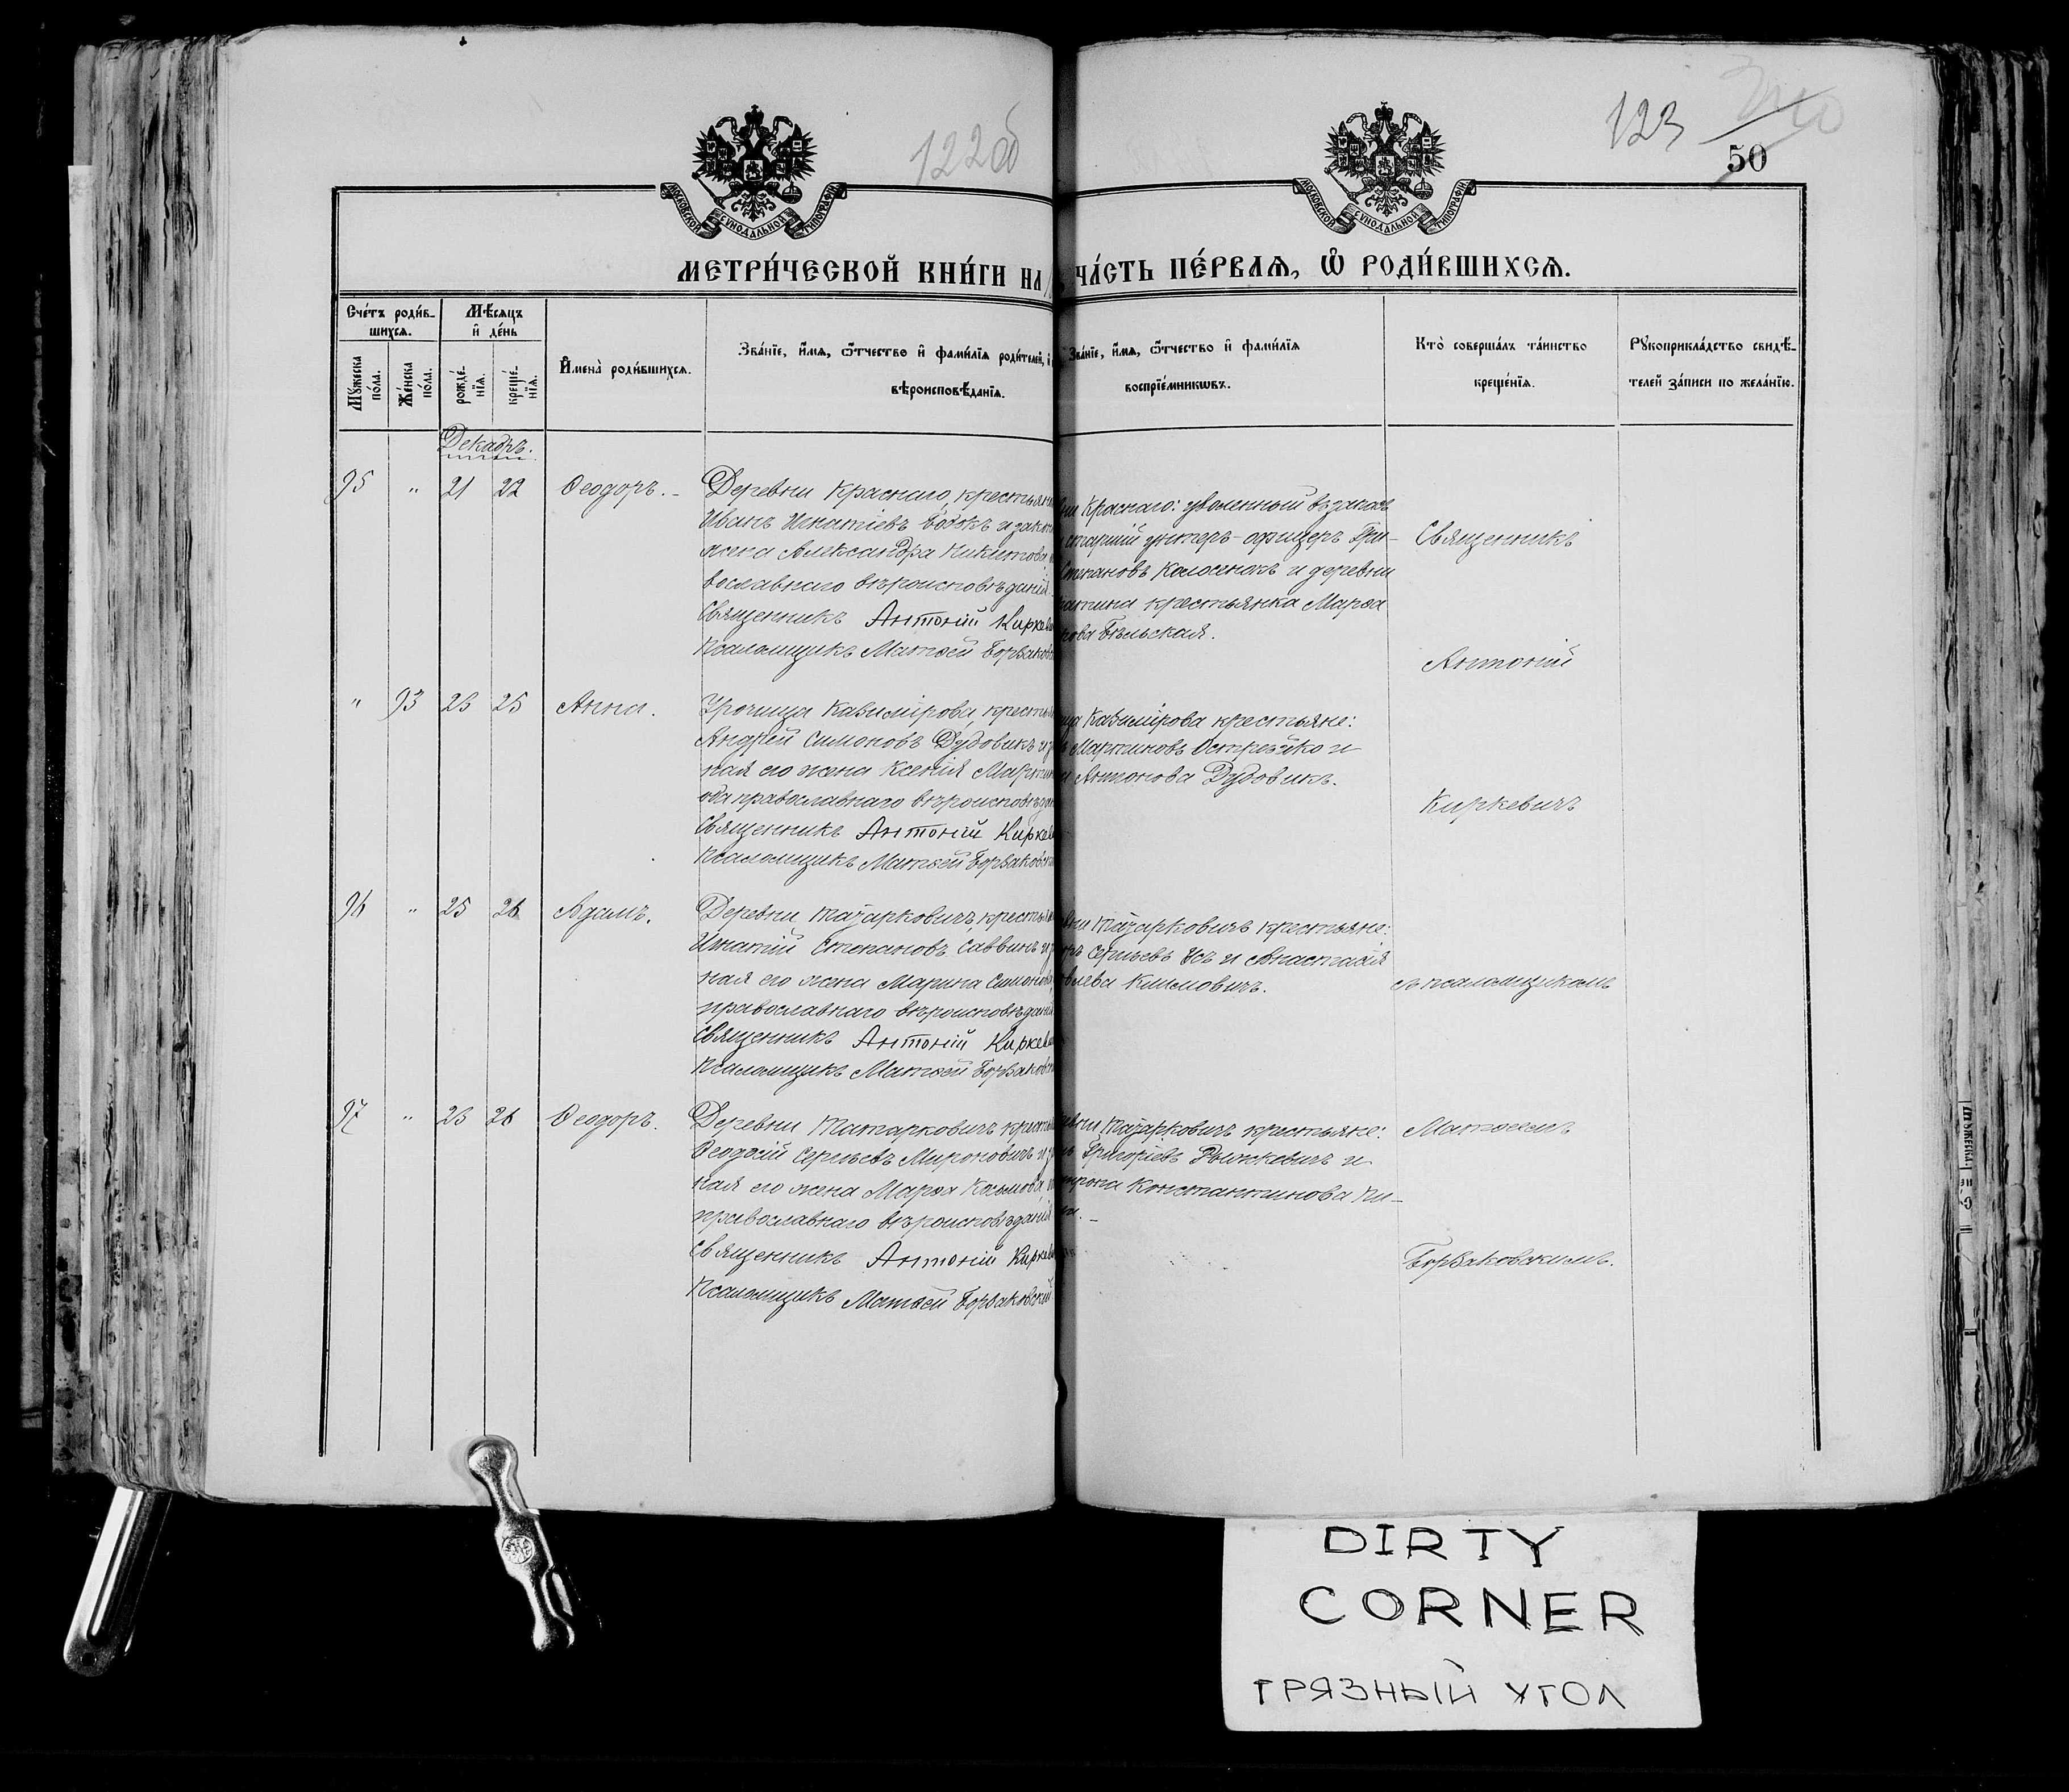 122об
123
50
МОСКОВСКОЙ СѴНОДАЛЬНОЙ ТИПОГРАФІИ
МОСКОВСКОЙ СѴНОДАЛЬНОЙ ТИПОГРАФІИ
МЕТРИ́ЧЕСКОЙ КНИ́ГИ НА
ЧА́СТЬ ПЕ́РВАѦ, Ѽ РОДИ́ВШИХСѦ.
Счетъ роди́в-
шихсѧ.
Мѣсѧцъ
и҆ де́нь
Мꙋжеска
по́ла.
Же́нска
по́ла.
рожде́-
нїѧ.
креще́-
нїѧ.
И҆мена̀ роди́вшихсѧ.
Зва́нїе, и҆́мѧ, ѻ҆́тчество и҆ фами́лїѧ роди́телей, и҆
вѣроисповѣ́данїѧ.
Зва́нїе, и҆́мѧ, ѻ҆́тчество и҆ фами́лїѧ
воспрїе́мникѡвъ.
Кто̀ соверша́лъ та́инство
креще́нїѧ.
Рꙋкоприкла́дство свидѣ́-
телей за́писи по жела́нїю.
Декабрь.
95 " 21 22 Ѳеодоръ.
Деревни Краснаго, крестьян
Иванъ Игнатіевъ и закон
жена Александра Никитова
вославнаго вѣроисповѣданія.
Священникъ Антоній Кирке
Псаломщикъ Матѳей Борзаков
ни Краснаго: уволенный въ запасъ
старшій унтеръ-офицеръ Гри-
Степановъ Колосенокъ и деревни
крестьянка Марѳа
рова Бѣльская.
" 93 23 25 Анна.
Урочища Казимірова, кресть
Андрей Симоновъ Дудовикъ и з
ная его жена Ксенія Мартин
оба православнаго вѣроисповѣдан
Священникъ Антоній Кирке
Псаломщикъ Матѳей Борзаков
ща Казимірова крестьяне:
Мартиновъ Острейко и
Антонова Дудовикъ.
96 " 25 26 Адамъ.
Деревни Татарковичъ, кресть
Игнатій Степановъ Саввинъ и
ная его жена Марина Симонова
православнаго вѣроисповѣданія
Священникъ Антоній Кирке
Псаломщикъ Матѳей Борзаков
Татарковичъ крестьяне:
Сергіевъ Усъ и Анастасія
Климовичъ.
97 " 23 26 Ѳеодоръ.
Деревни Татарковичъ кресть
Ѳеодосій Сергіевъ Мироновичъ и з
ная его жена Марѳа Козьмова,
православнаго вѣроисповѣданія
Священникъ Антоній Кирке
Псаломщикъ Матѳей Борзаковскій
Татарковичъ крестьяне:
Григоріевъ Рышкевичъ и
Константинова
Священникъ
Антоній
Киркевичъ
съ псаломщикомъ
Матѳеемъ
Борзаковскимъ.
DIRTY
CORNER
ГРЯЗНЫЙ УГОЛ